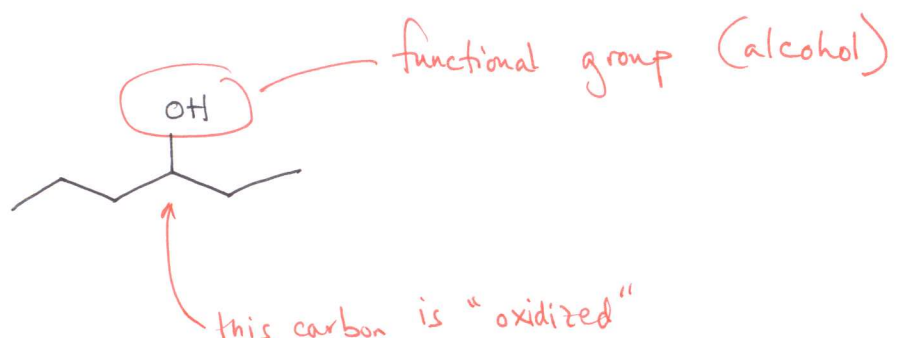 functional group (alcohol)
OH
this carbon is "oxidized"